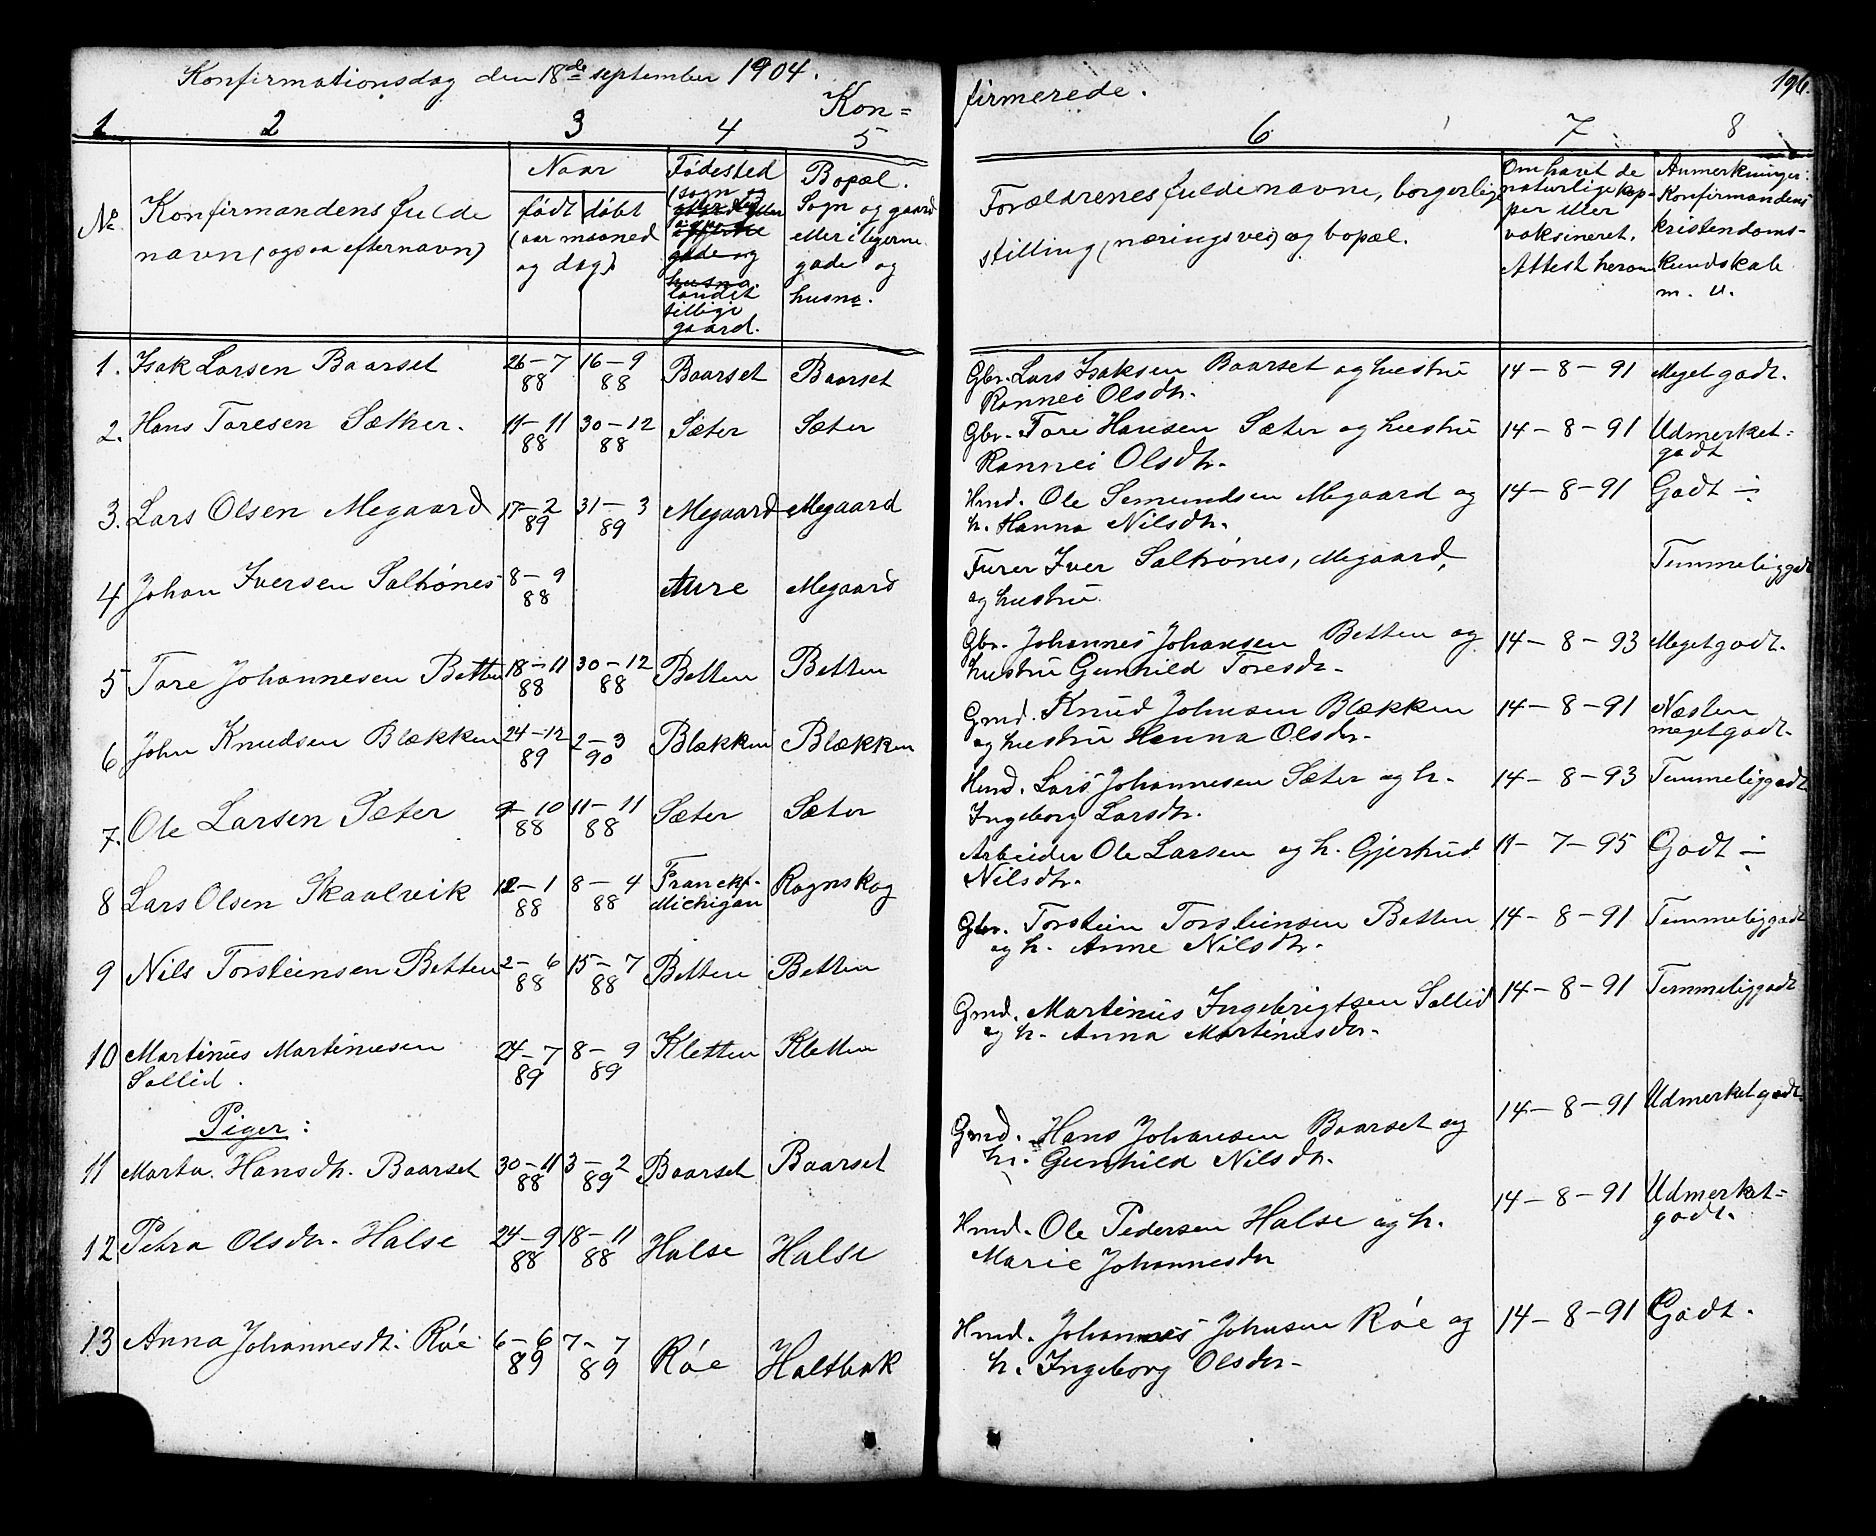 Konfirmationsdag den 18de september 1904.
Kon=
firmerede.
196.
1 2 3 4 5 6 7 8
No
Konfirmandens fulde
navn (ogsaa efternavn)
Naar
født døbt
(aar maaned
og dag)
Fødested
(sogn og
gade og
husno.
landet
tillige
gaard.
Bopæl.
Sogn og gaard
eller i byerne
gade og
husno.
Forældrenes fulde navne, borgerlige
stilling (næringsvei) og bopæl.
Om havt de
naturlige kop-
per eller
vaksineret.
Attest herom
Anmerkninger:
Konfirmandens
kristendoms-
kundskab
m. v.
1. Isak Larsen Baarset 26-7 88 16-9 88 Baarset Baarset Gbr. Lars Isaksen Baarset og hustru 14-8-91 Meget godt.
Rannei Olsdtr.
2. Hans Toresen Sæther. 11-11 88 30-12 88 Sæter Sæter Gbr. Tore Hansen Sæter og hustru 14-8-91 Udmerket=
Rannei Olsdtr. godt
3. Lars Olsen Megaard 17-2 89 31-3 89 Megaard Megaard Hmd. Ole Semundsen Megaard og 14-8-91 Godt ÷
h. Hanna Nilsdtr.
4 Johan Iversen Saltrónes 8-9 88 Aure Megaard Furer Iver Saltrónes, Megaard, Temmeliggodt
og hustru.
5 Tore Johannesen Betten 18-11 88 30-12 88 Betten Betten Gbr. Johannes Johansen Betten og 14-8-93 Megetgodt.
hustru Gunhild Toresdr.
6 John Knudsen Blækken 24-12 89 2-3 90 Blækken Blækken Gmd. Knud Johnsen Blækken 14-8-91 Næsten
og hustru Hanna Olsdr. megetgodt.
7. Ole Larsen Sæter 9-10 88 11-11 88 Sæter Sæter Hmd. Lars Johannesen Sæter og h. 14-8-93 Temmeliggodt
Ingeborg Larsdtr.
8 Lars Olsen Skaalvik 12-1 88 8-4 88 Franckf. Michigan Rognskog Arbeider Ole Larsen og h. Gjertrud 11-7-95 Godt ÷
Nilsdtr.
9 Nils Torsteinsen Betten 2-6 88 15-7 88 Betten Betten Gbr. Torstein Torsteinsen Betten 14-8-91 Temmeliggodt
og h. Anne Nilsdtr.
10 Martinus Martinusen 24-7 89 8-9 89 Kletten Kletten Gmd. Martinus Ingebrigtsen Sollid 14-8-91 Temmeliggodt
Sollid. og h. Anna Martinusdr.
Piger:
11 Marta Hansdtr. Baarset 30-11 88 3-2 89 Baarset Baarset Gmd. Hans Johansen Baarset og 14-8-91 Udmerketgodt.
h. Gunhild Nilsdtr.
12 Petra Olsdr. Halse 24-9 88 18-11 88 Halse Halse Hmd. Ole Pedersen Halse og h. 14-8-91 Udmerket=
Marie Johannesdr godt.
13 Anna Johannesdt. Róe 6-6 89 7-7 89 Róe Haltbak Hmd. Johannes Johnsen Róe og 14-8-91 Godt.
h. Ingeborg Olsdr.